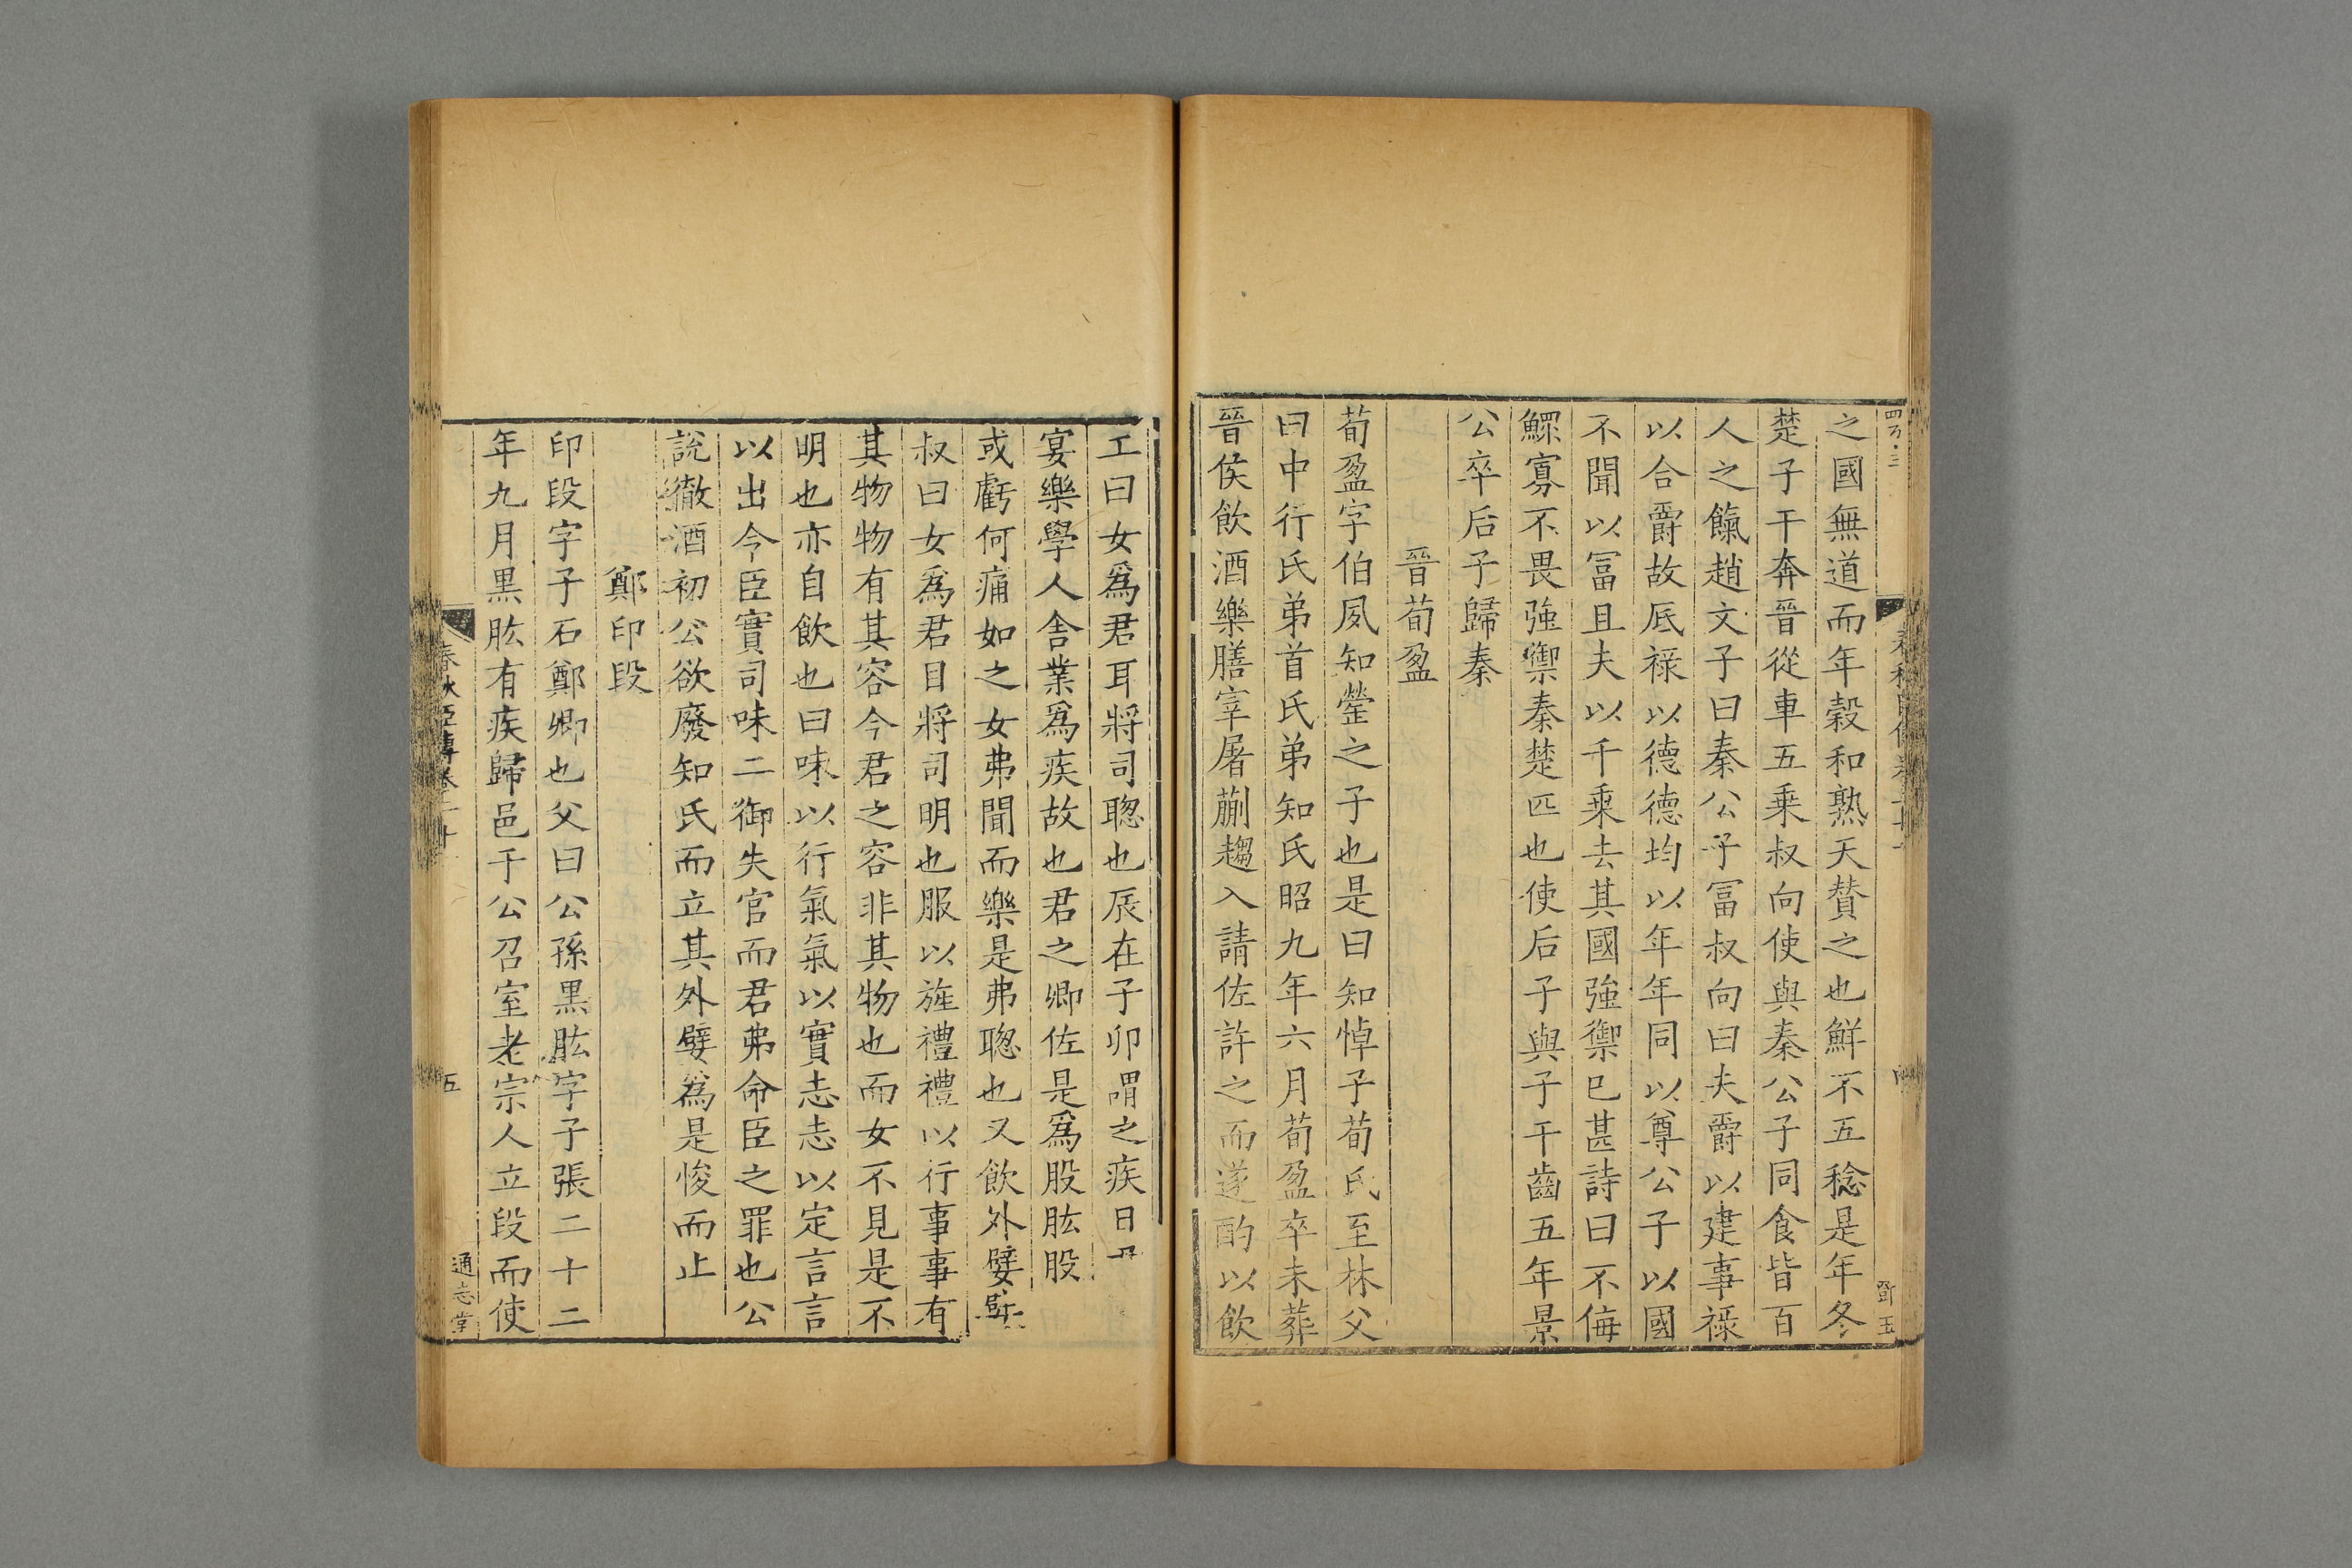 之國無道而年穀和熟天贊之也鮮不五稔是年冬
楚子干奔晉從車五乗叔向使與秦公子同食皆百
人之餼趙文子曰秦公子冨叔向曰夫爵以建事祿
以合爵故底祿以德德均以年年同以尊公子以國
不聞以冨且夫以千乗去其國強禦已甚詩曰不侮
鰥寡不畏強禦秦楚匹也使后子與子干齒五年景
公卒后子歸秦
晉荀盈
荀盈字伯夙知罃之子也是曰知悼子荀氏至林父
曰中行氏弟首氏弟知氏昭九年六月荀盈卒未葬
晉侯飲酒樂膳宰屠蒯趨入請佐許之而遂酌以飲
工曰女爲君耳將司聰也辰在子卯謂之疾日
宴樂學人舎業爲疾故也君之卿佐是爲股肱股
或虧何痛如之女弗聞而樂是弗聰也又飲外嬖嬖
叔曰女爲君目將司明也服以旌禮禮以行事事有
其物物有其容今君之容非其物也而女不見是不
明也亦自飲也曰味以行氣氣以實志志以定言言
以出令臣實司味二御失官而君弗命臣之罪也公
說徹酒初公欲廢知氏而立其外嬖爲是悛而止
鄭印段
印段字子石鄭卿也父曰公孫黒肱字子張二十二
年九月黒肱有疾歸邑于公召室老宗人立段而使
春秋臣傳卷二十
五
通志堂